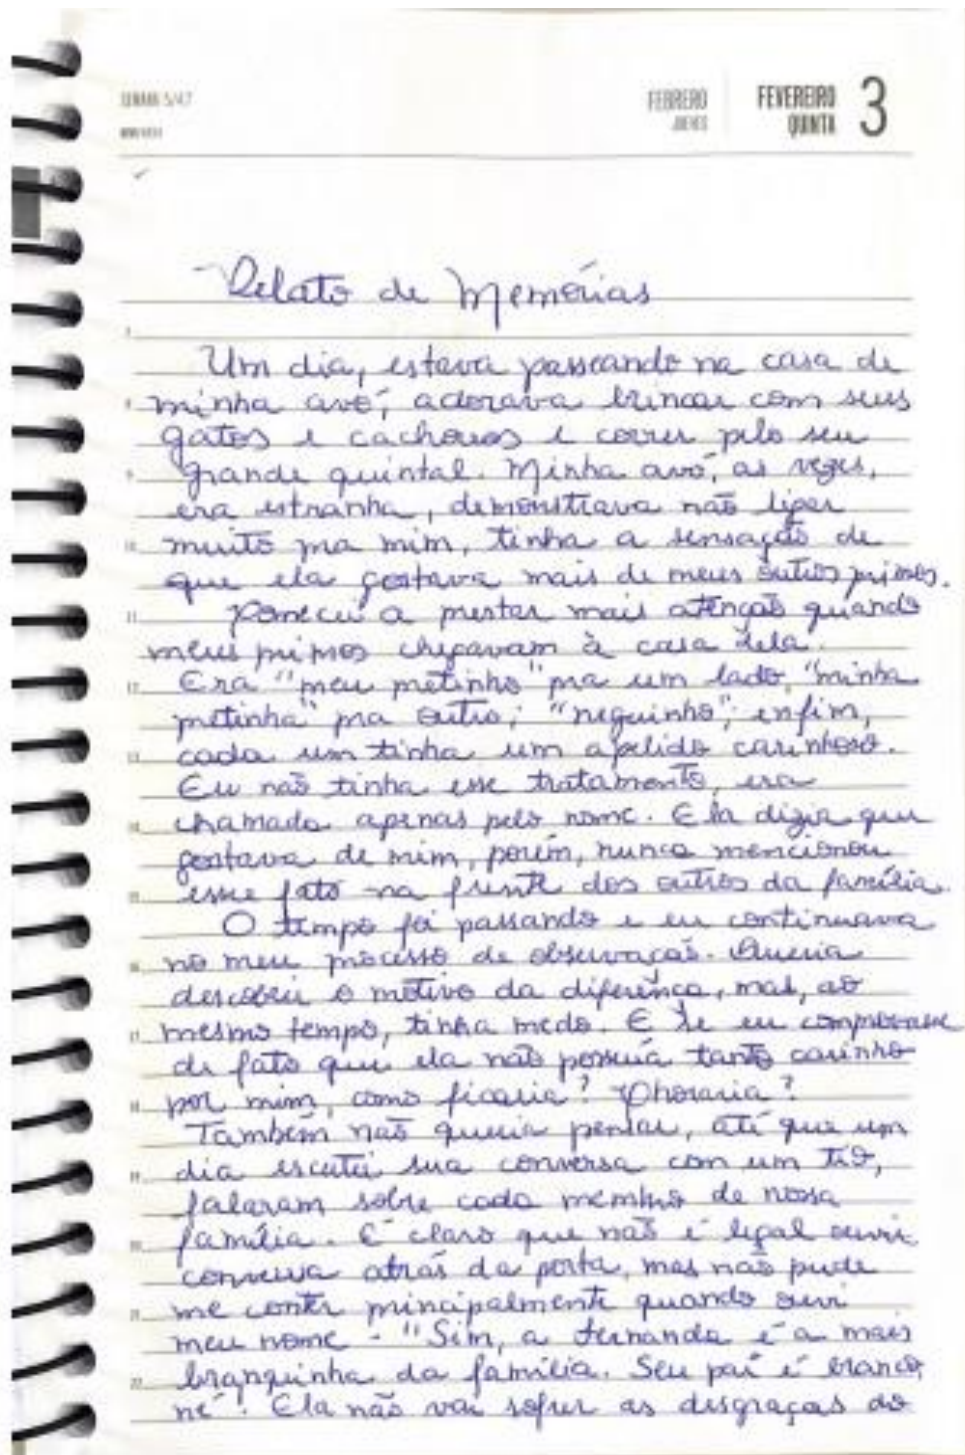 SEMANA 5/47
FEBRERO
JUEVES
FEVEREIRO
QUINTA
3
Relato de Memórias
Um dia, estava passeando na casa de
minha avó, adorava brincar com seus
gatos e cachorros e correr pelo seu
grande quintal. Minha avó, as vezes,
era estranha, demonstrava não ligar
muito pra mim, tinha a sensação de
que ela gostava mais de meus outros primos.
Comecei a prestar mais atenção quando
meus primos chegavam à casa dela.
Era "meu pretinho" pra um lado, "minha
pretinha" pra outro; "neguinho"; enfim,
cada um tinha um apelido carinhoso.
Eu não tinha esse tratamento, era
chamada apenas pelo nome. Ela dizia que
gostava de mim, porém, nunca mencionou
esse fato na frente dos outros da família.
O tempo foi passando e eu continuava
no meu processo de observação. Queria
descobrir o motivo da diferença, mas, ao
mesmo tempo, tinha medo. E se eu comprovasse
de fato que ela não possuía tanto carinho
por mim, como ficaria? Choraria?
Também não queria pensar, até que um
dia escutei sua conversa com um tio,
falaram sobre cada membro de nossa
família. É claro que não é legal ouvir
conversa atrás da porta, mas não pude
me conter principalmente quando ouvi
meu nome - "Sim, a Fernanda é a mais
branquinha da família. Seu pai é branco,
né! Ela não vai sofrer as desgraças do